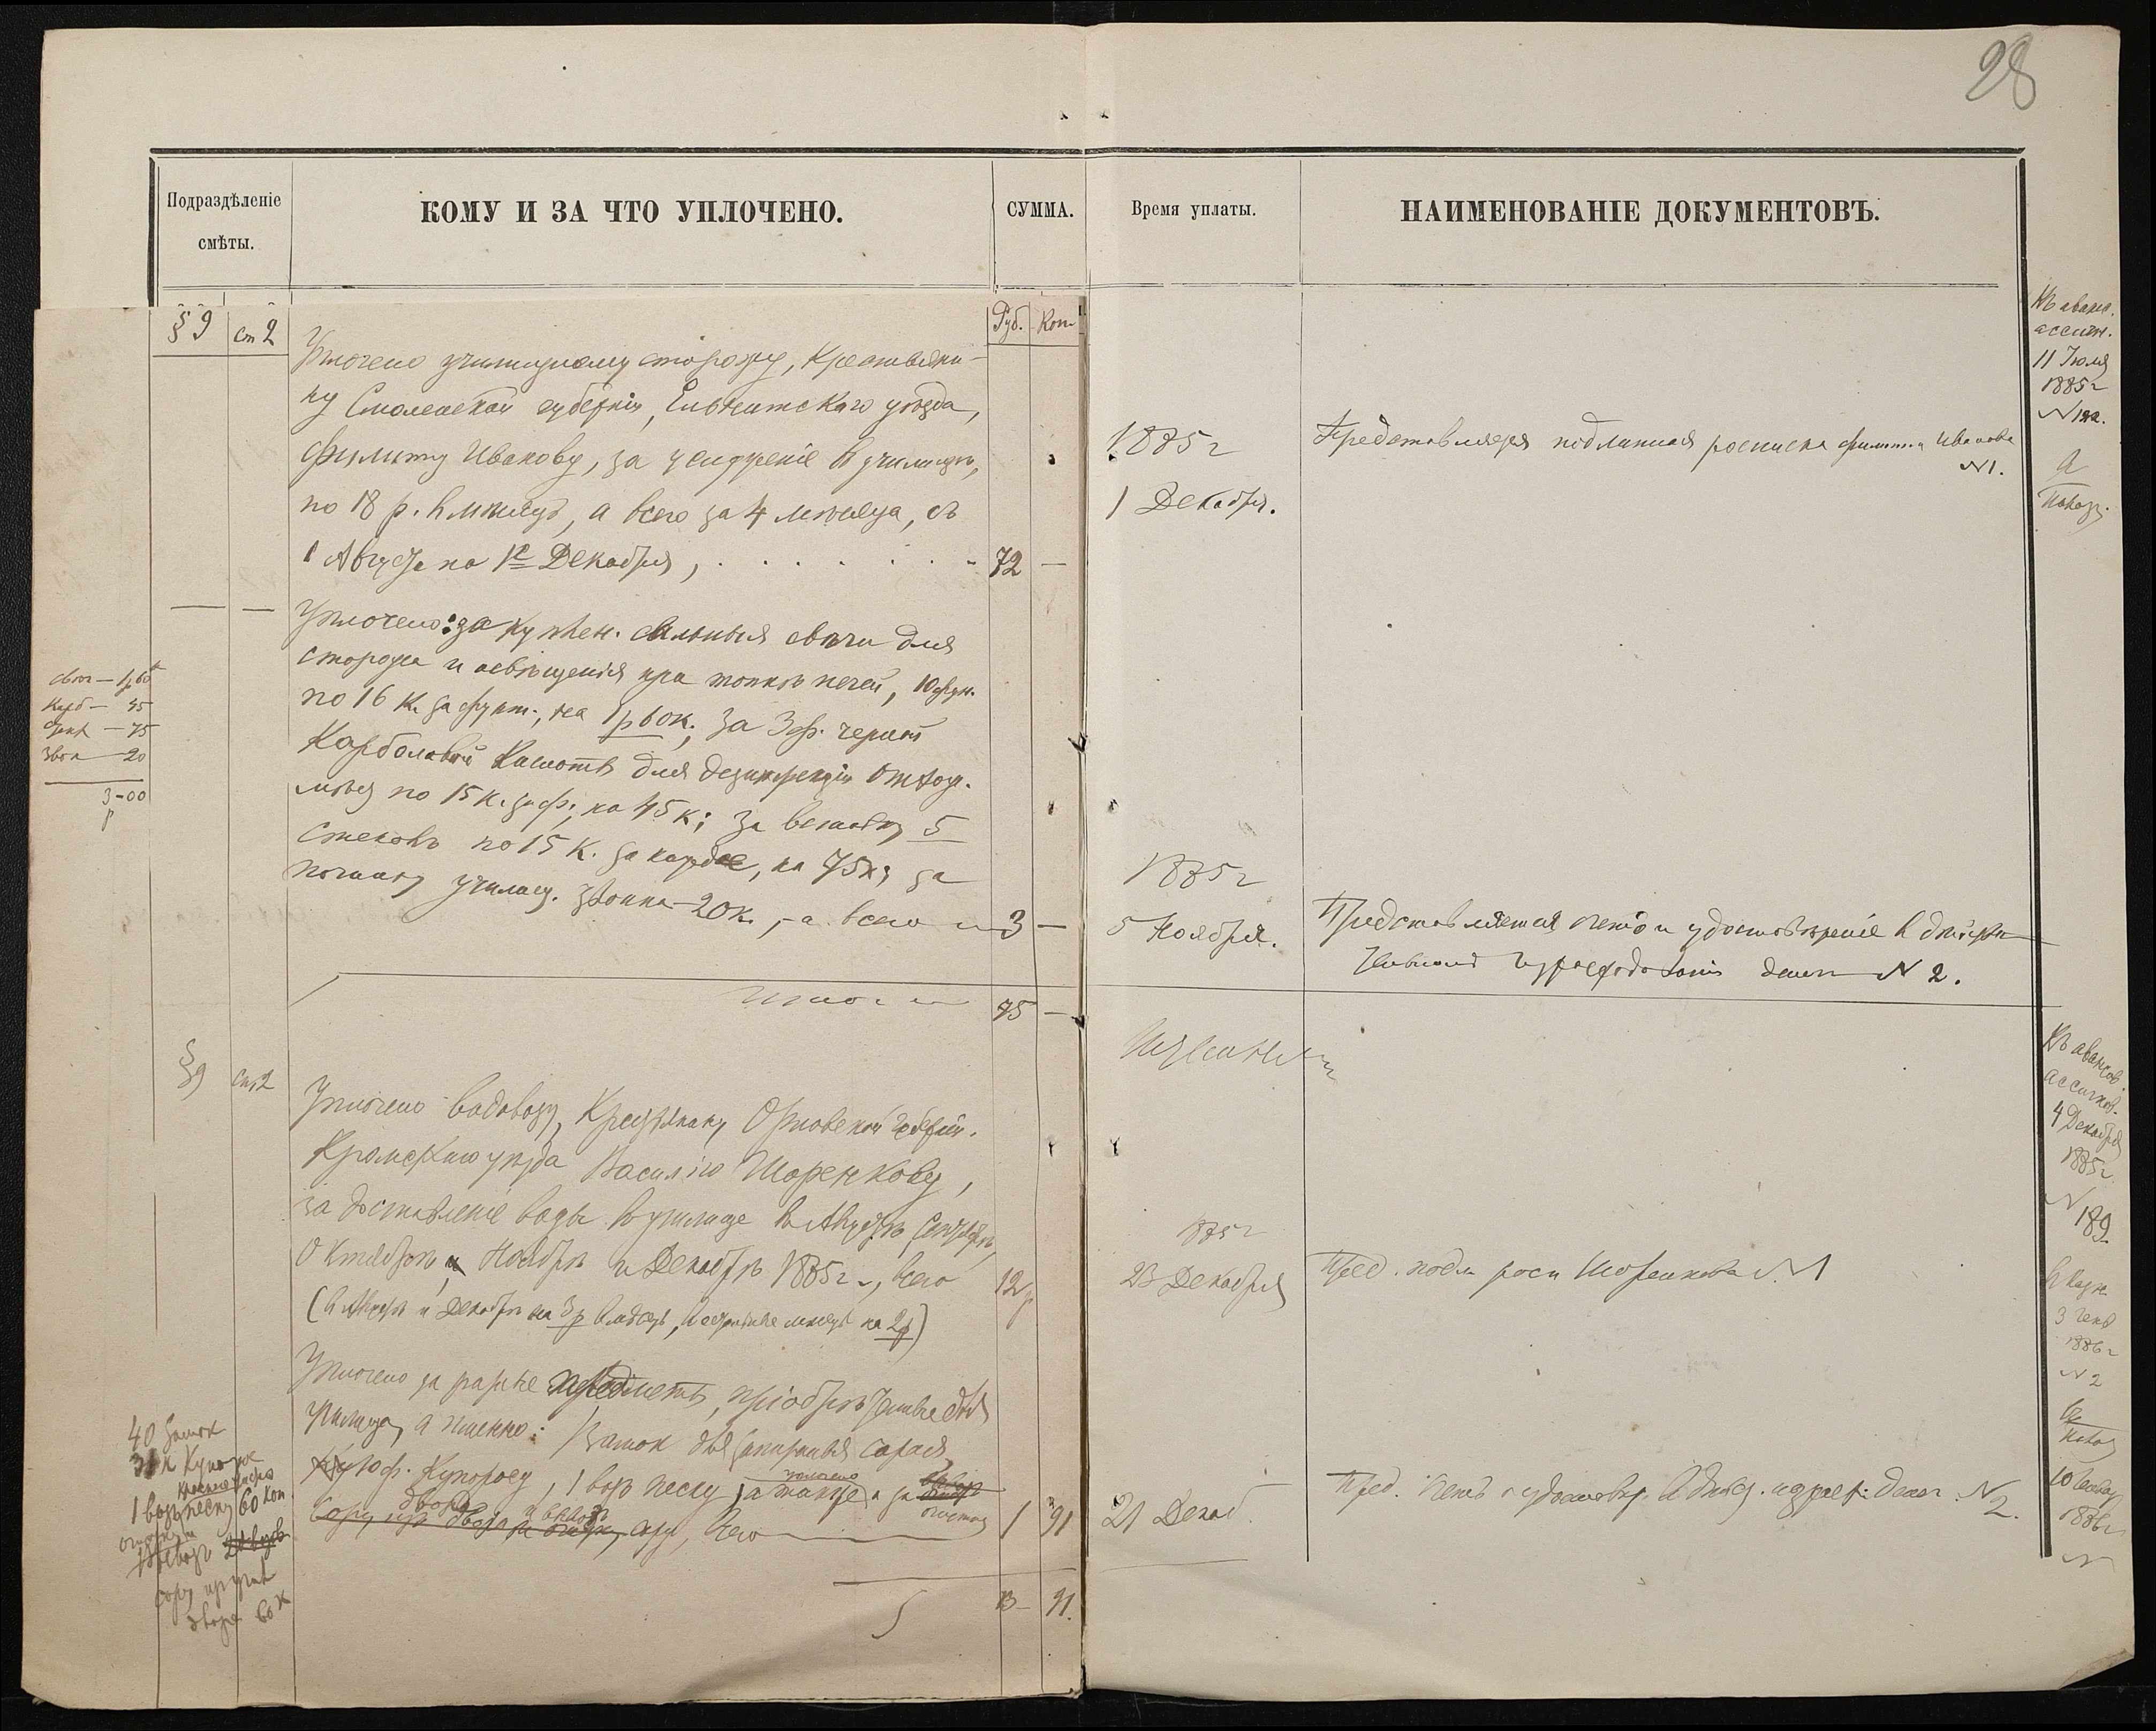 28
Подраздѣленіе
смѣты.
КОМУ И ЗА ЧТО УПЛОЧЕНО.
СУММА.
Время уплаты.
НАИМЕНОВАНІЕ ДОКУМЕНТОВЪ.
§ 9 ст 2
Руб. Коп
Уплочено училищному сторожу, крестьяни-
ну Смоленской губерніи, Ельнитскаго уѣзда,
Филипу Иванову, за услуженіе въ училищѣ,
по 18 р. въ мѣсяцъ, а всего за 4 мѣсяца, съ
1 Августа по 1е Декабря, 72 —
1885 г
1 Декабря.
Представляется подлинная росписка Филиппа Иванова
№ 1.
Къ аванс.
ассигн.
11 Іюля
1885 г
№ 122.
Уплочено: за куплен. сальныя свѣчи для
сторожа и освѣщенія при топкѣ печей, 10 фун.
по 16 к. за фунт., на 1 р 60 к.; за 3 ф. черной
карболовой кислоты для дезинфекціи отхож.
мѣстъ по 15 к. за ф., на 45 к; за вставку 5
стеколъ по 15 к. за каждое, на 75 к; за
починку училищ. звонка — 20 к., — а всего 3 —
свѣч — 1 р 60
Карб — 45
Стек — 75
Звон — 20
3 - 00
р
1885 г
5 Ноября.
Представляется счетъ и удостовѣреніе въ дѣйстви-
тельномъ израсходованіи денегъ № 2.
Итого 75 —
§ 9 ст 2
Уплочено водовозу, крестьянину Орловской губерніи.
Кромскаго уѣзда Василію Шоренкову,
за доставленіе воды въ училище въ Августѣ, Сентябрѣ,
Октябрѣ, Ноябрѣ и Декабрѣ 1885 г., всего 12 р
(въ Августѣ и Декабрѣ на 3 р въ мѣсяцъ, въ остальные мѣсяцы на 2 р)
1885 г
23 Декабря
Пред. подл. росп Шоренкова № 1
Къ авансов.
ассигнов.
4 Декабря
1885 г
№ 189.
3 Генв
1886 г
№ 2
Уплочено за разные предметы, пріобрѣтенные для
училища, а именно: 1 замок для запиранья сарая,
10 ф. купоросу, 1 возъ песку, а также за
сору, всего 1 91
40 замок
1 возъ песку 60 коп
двора 60 к
21 Декаб.
Пред. счетъ и удостовѣр. въ дѣйст. израсх. денег № 2.
10 Генвар
1886 г
№
13 — 91.